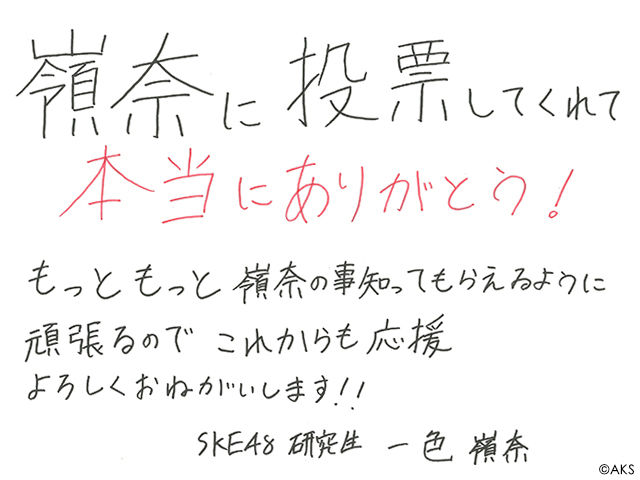 嶺奈に投票してくれて
本当にありがとう!
もっともっと嶺奈の事知ってもらえるように
頑張るのでこれからも応援
よろしくおねがいします!!
SKE48 研究生 一色 嶺奈
©AKS